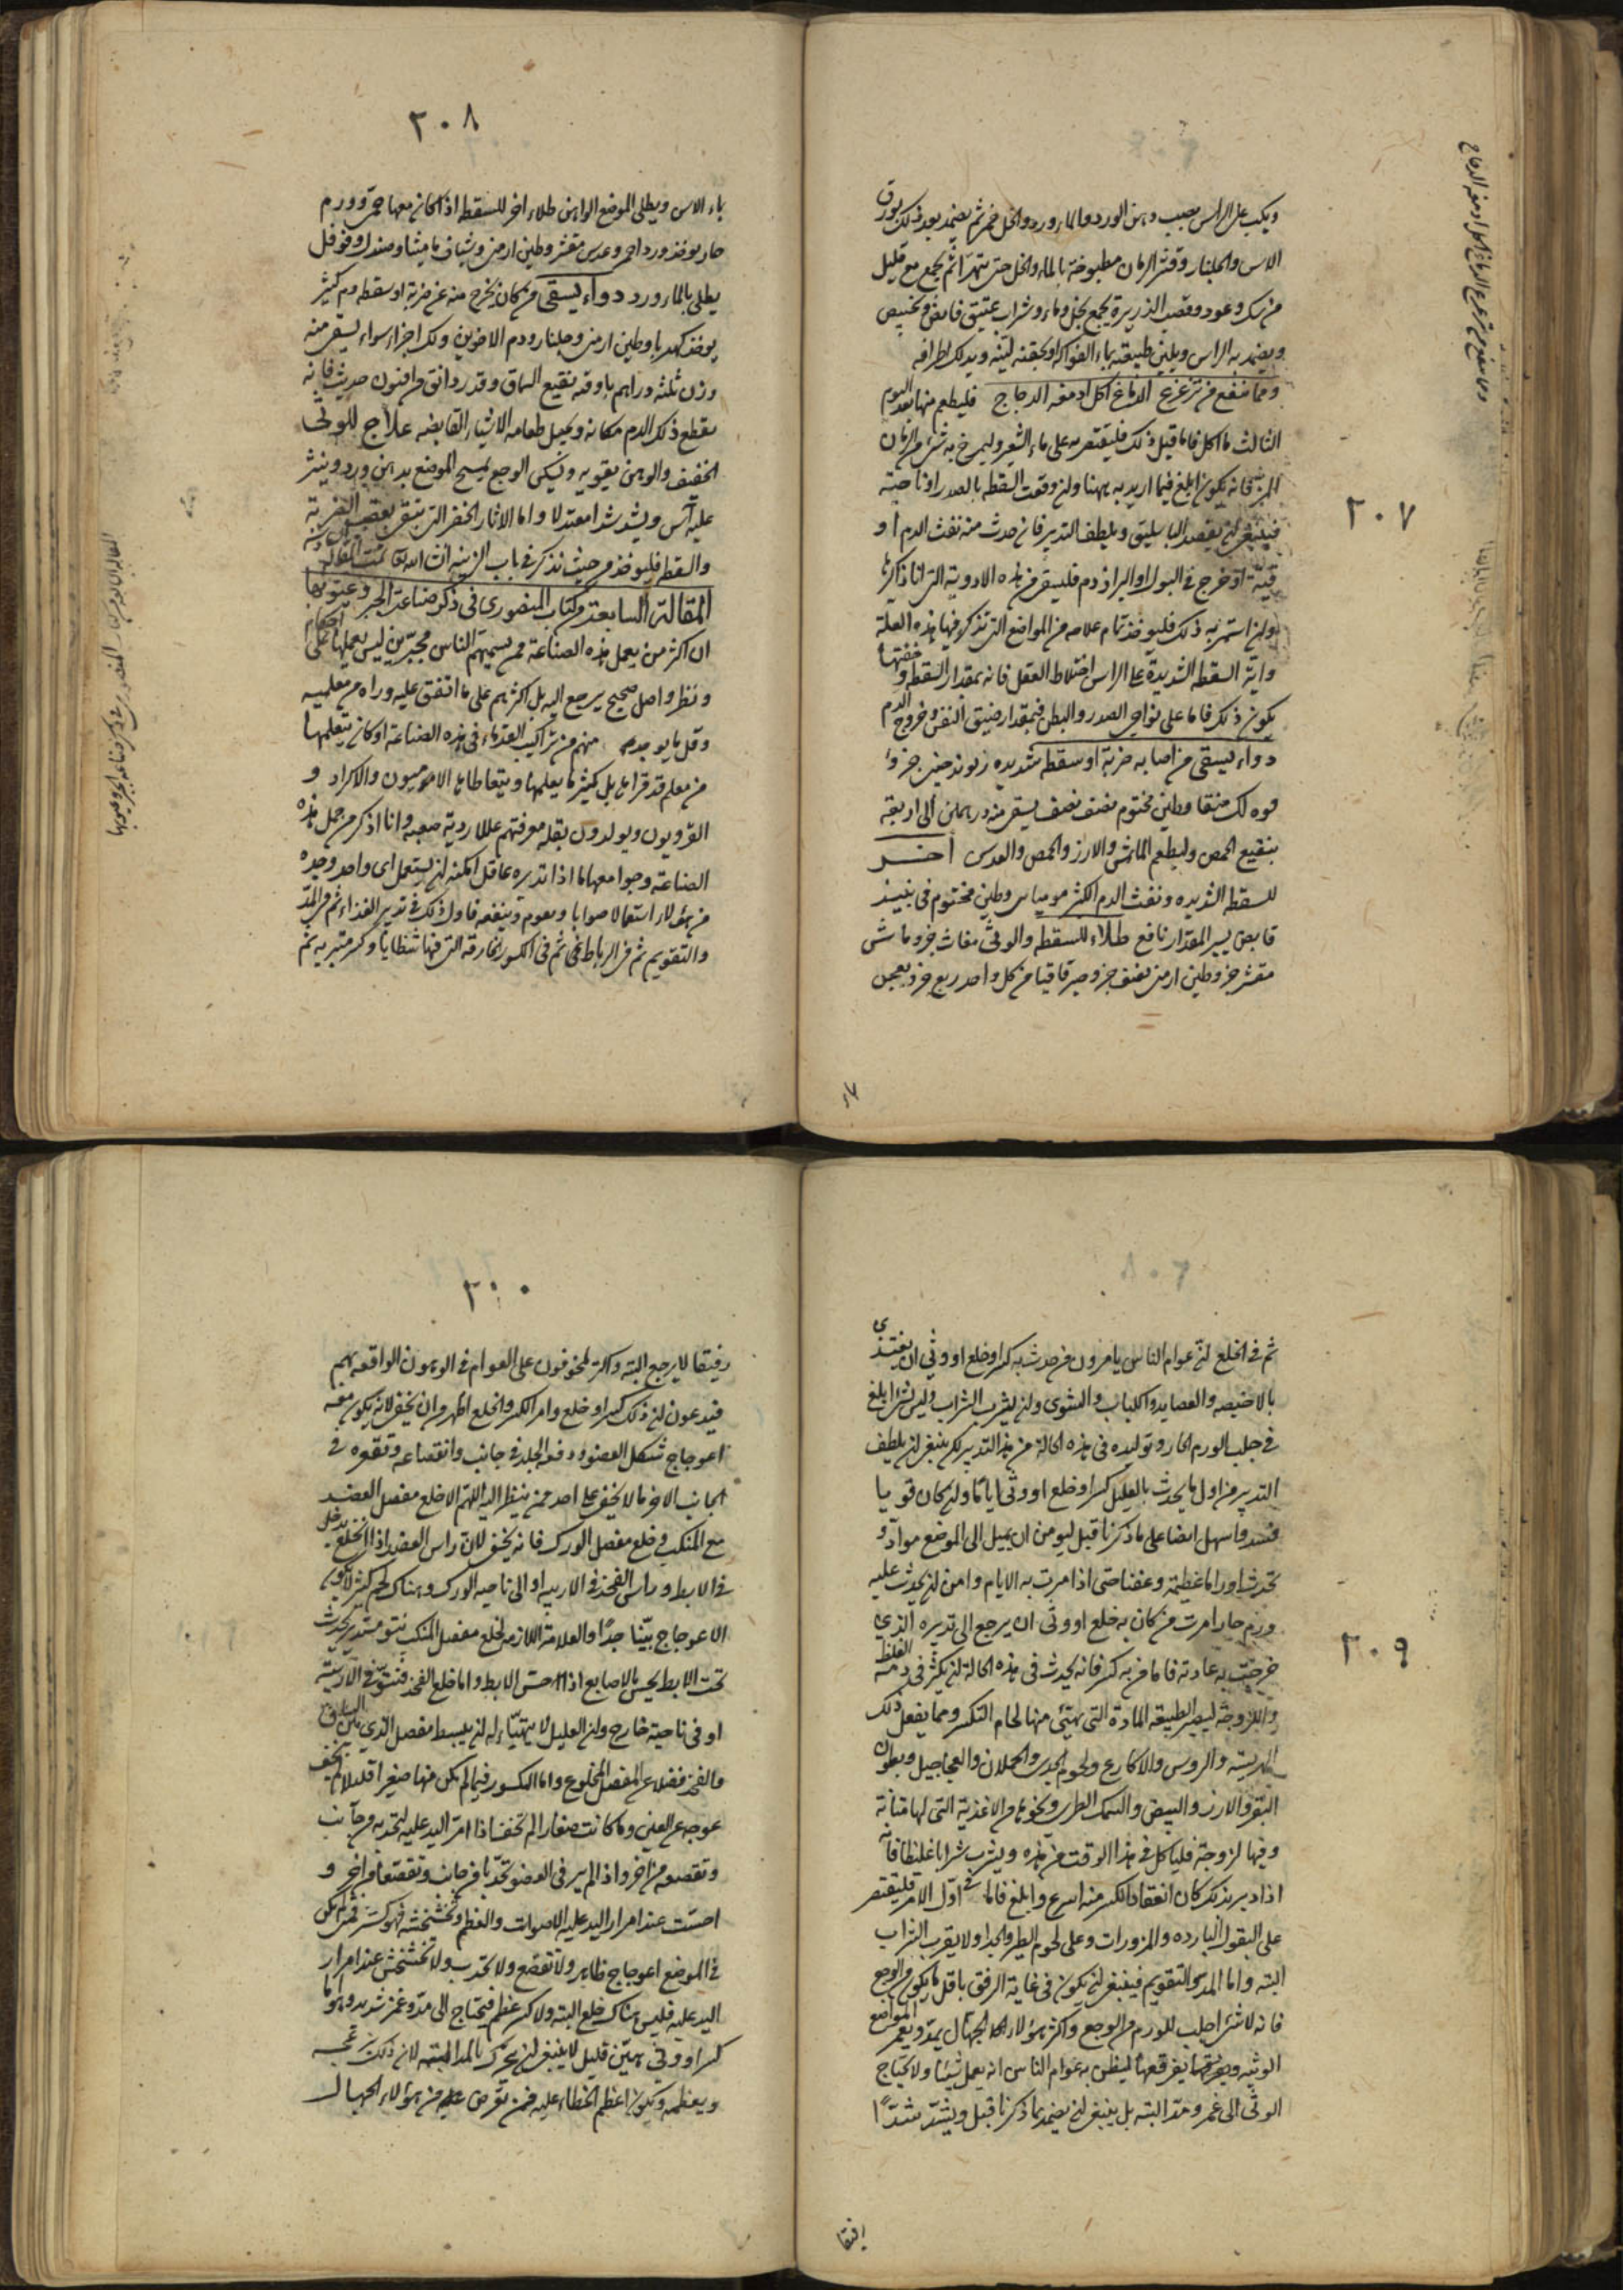 ٢٠٧
ويكب على الراس بصب دهن الورد والماء ورد والخل خمر ثم يضمد بعد ذلك بورق
الاس والجلنار وقشر الرمان مطبوخة بالماء والخل حتى يتهرا ثم يجمع مع قليل
من سك وعود وقصب الذريرة يجمع بخل وماء وشراب عتيق قابض وخبيص
ويضمد به الراس ويلين طبيعته بماء الفواكه او بحقنه لينه ويدلك اطرافه
ومما ينفع من تزعزع الدماغ اكل ادمغه الدجاج فليطعم منها بعد اليوم
الثالث ما اكل فاما قبل ذلك فليقتصر به على ماء الشعير وليمرخ به شئ من الرمان
المز فانه يكون ابلغ فيما اريد به يهنا وان وقعت السقطه بالصدر او ناحيته
فينبغى ان يفصد الباسليق ويلطف التدبير فان حدث منه نفث الدم او
قيئه او خرج فى البول او البراز دم فليسق من هذه الادوية التى انا ذاكرها
وان استمر به ذلك فليوخذ تمام علاجه من المواضع التى نذكر فيها هذه العلة
واية السقطه الشديدة على الراس اختلاط العقل فانه بمقدار السقطه وخفتها
يكون ذلك فاما على نواحى الصدر والبطن فبمقدار ضيق النفس وخروج الدم
دواء يسقى من اصابه ضربة او سقطه شديده زيوند صينى جزؤ
فوه لك منقا وطين مختوم نصف نصف يسقى منه درهمين الى اربعة
بنقيع الحمص وليطعم الماش والارز والحمص والعدس اخر
للسقطه الشديده ونفث الدم الكثير موميائى وطين مختوم فى نبيذ
قابض يسير المقدار نافع طلاء للسقطه والوثى مغاث جزو ماش
مقشر جزو طين ارمنى نصف جزو صبر قاقيا من كل واحد ربع جزو يعجن
٢٠٨
بماء الاس ويطلى الموضع الواهن طلاء اخر للسقطه اذا كان معها حمرة وورم
حار يوخذ ورد احمر وعدس مقشر وطين ارمنى وشياف مامیثا وصندل وفوفل
يطلى بالماء ورد دواء يسقى من كان يخرج منه عن ضربة او سقطه دم كثير
يوخذ كهربا وطين ارمنى وجلنار ودم الاخوين ولك اجزاء سواء يسقى منه
وزن ثلثه دراهم باوقه نقيع السماق وقدر دانق من افيون حديث فانه
يقطع ذلك الدم مكانه ويجعل طعامه الاشياء القابضه علاج للوثى
الخفيف والوهن يقويه ويسكن الوجع يمسح الموضع بدهن ورد وينثر
عليه آس ويشد شدا معتدلا واما الاثار الخضر التى تبقى بعقب الضربة
والسقط فليوخذ من حيث نذكر فى باب الزينه ان شاء الله تمت المقالة السادسه
المقالة السابعة من كتاب المنصورى فى ذكر صناعة الجبر وعيوبها
ان اكثر من يعمل هذه الصناعة ممن يسميهم الناس مجبرين ليس يعملها على احكام
ونظر واصل صحيح يرجع اليه بل اكثرهم على ما اتفق عليه وراه من معلميه
وقل ما يوجد منهم من تراكيب القدماء فى هذه الصناعة او كان يتعلمها
من معلم قد قراها بل كثير ما يعلمها ويتعاطاها الاميون والاكراد و
القرويون ويولدون بقلة معرفتهم عللا ردية صعبه وانا اذكر من جمل هذه
الصناعة وجوامعها ما اذا تدبره عاقل امكنه ان يستعمل اى واحد وجده
من هؤلاء استعمالا صوابا ويقوم وينفعه فاول ذلك فى تدبير الغذاء ثم فى المد
والتقويم ثم فى الرباط ثم فى الكسور الخارقة التى فيها شظايا وكسر متبريه ثم
٢٠٩
ثم فى الخلع ان عوام الناس يامرون من حدث به كسر او خلع او وثى ان يغتذى
بالاخبصه والعصايد والكباب والشوى وان يشرب الشراب وليس شئ ابلغ
فى جلب الورم الحار وتوليده فى هذه الحالة من هذا التدبير لكن ينبغى ان يلطف
التدبير من اول ما يحدث بالعليل كسر او خلع او وثى اياما وان كان قويا
فصد واسهل ايضا على ما ذكرنا قبل ليومن ان يميل الى الموضع مواد و
تحدث اوراما عظيمة وعفنا حتى اذا مرت به الايام وامن ان يحدث عليه
ورم حار امرت من كان به خلع او وثى ان يرجع الى تدبيره الذى
جرت به عادته فاما من به كسر فانه يحدث فى هذه الحالة ان يكثر فى دمه الغلظ
واللزوجة ليصير الطبيعة المادة التى يهتئى منها لحام التكسر ومما يفعل ذلك
الهريسه والروس والاكارع ولحوم الجدى والحملان والعجاجيل وبطون
البقر والارز والبيض والسمك الطرى ونحوها من الاغذية التى لها متانة
وفيها لزوجة فلياكل فى هذا الوقت من هذه ويشرب شرابا غليظا فانه
اذا دبر بذلك كان انعقاد الكسر منه اسرع وابلغ فاما فى اول الامر فليقتصر
على البقول البارده والمزورات وعلى لحوم الطير والجدا ولا يقرب الشراب
البته واما المد والتقويم فينبغى ان يكون فى غاية الرفق باقل ما يكون من الوجع
فانه لا شئ اجلب للورم من الوجع واكثر هؤلاء الجهال يمد ويغمز المواضع
الوثيه ويفرقعها ليظن به عوام الناس انه يعمل شيئا ولا يحتاج
الوثى الى غمز ومد البته بل ينبغى ان يضمد بما ذكرنا قبل ويشد شدا
٢٠٠
رفيقا لا يرجع البته واكثر المخوفون على العوام فى الوهون الواقعه بهم
فيدعون ان ذلك كسر او خلع وامر الكسر والخلع اظهر من ان يخفى لانه يكون معه
اعوجاج شكل العضو ودفع الجلد فى جانب وانقصاعه وتقعره فى
الجانب الاخر ما لا يخفى على احد ممن ينظر اليه اللهم الا خلع مفصل العضد
مع المنكب وخلع مفصل الورك فانه يخفى لان راس العضد اذا انخلع يدخل
فى الابط وراس الفخذ فى الاربيه او الى ناحيه الورك وهناك لحم كثير لا يكون
الاعوجاج بينا جدا والعلامة اللازمه لخلع مفصل المنكب نتو مستدير يحدث
تحت الابط يحس بالاصابع اذا حس الابط واما خلع الفخذ فنتو بين فى الاربية
او فى ناحية خارج وان العليل لا يتهيا له ان يبسط مفصل الذى بين الساق
والفخذ فضلا عن المفصل المخلوع واما الكسور فيما لم يكن منها صغيرا قليلا لم يخف
عوجه عن العين وما كانت صغارا لم تخف اذا امر اليد عليه لتحدبه من جانب
وتقصعه من اخر واذا لم ير فى العضو تحدبا من جانب وتقصعا من اخر و
احست عند امرار اليد عليه الاصوات والعظم وتخشخشه فهو كسر فمتى لم يكن
فى الموضع اعوجاج ظاهر ولا تقصع ولا تحدب ولا تخشخش عند امرار
اليد عليه فليس هناك خلع البته ولا كسر عظم فيحتاج الى مد وغمز شديد وهو اما
كسر او وثى هين قليل لا ينبغى ان يحرك بالمد البته لان ذلك يزعجه
ويعظمه ويكون اعظم الخطاء عليه فمن تعرض عليه من هؤلاء الجهال